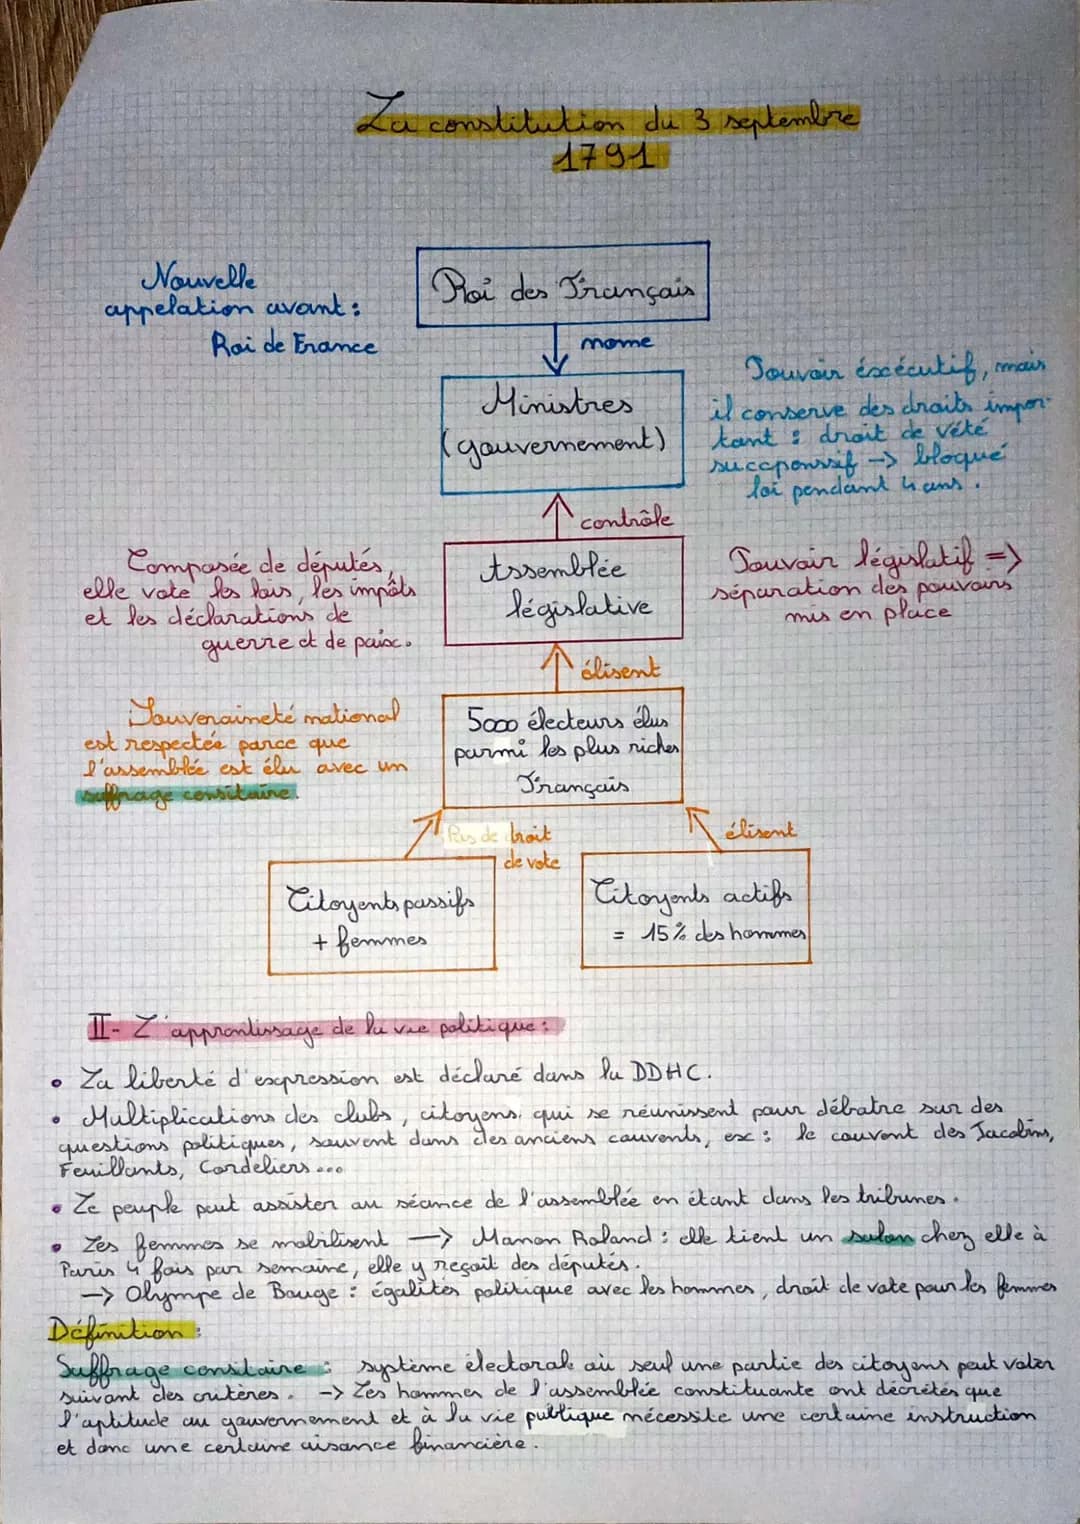 La constitution du 3 septembre
1791
Nouvelle
appelation avant :
Roi de France
Roi des Français
nome
Ministres
(gouvernement)
Pouvoir éxécutif, mais
il conserve des droits impor-
tant : droit de vété
succponssif -> bloqué
loi pendant 4 ans.
contrôle
Composée de députés,
elle vote les lois, les impôts
et les déclarations de
guerre et de paix.
Assemblée
législative
Pouvoir législatif =>
séparation des pouvoirs
mis en place
élisent
Souveraineté national
est respectée parce que
l'assemblée est élu avec un
suffrage censitaire.
5000 électeurs élus
parmi les plus riches
Français
Pas de droit
de vote
élisent
Citoyents passifs
+ femmes
Citoyents actifs
= 15% des hommes
II- L'apprentissage de la vie politique :
• La liberté d'expression est déclaré dans la DDHC.
• Multiplications des clubs, citoyens qui se réunissent pour débatre sur des
questions politiques, souvent dans des anciens couvents, ex : le couvent des Jacobins,
Feuillants, Cordeliers...
• Le peuple peut assister au séance de l'assemblée en étant dans les tribunes.
• Les femmes se mobilisent -> Manon Roland : elle tient un salon chez elle à
Paris 4 fois par semaine, elle y reçoit des députés.
-> Olympe de Bouge : égalités politique avec les hommes, droit de vote pour les femmes
Définition :
Suffrage censitaire : système électorale où seul une partie des citoyens peut voter
suivant des critères. -> Les hommes de l'assemblée constituante ont décrétés que
l'aptitude au gouvernement et à la vie publique nécessite une certaine instruction
et donc une certaine aisance financière.